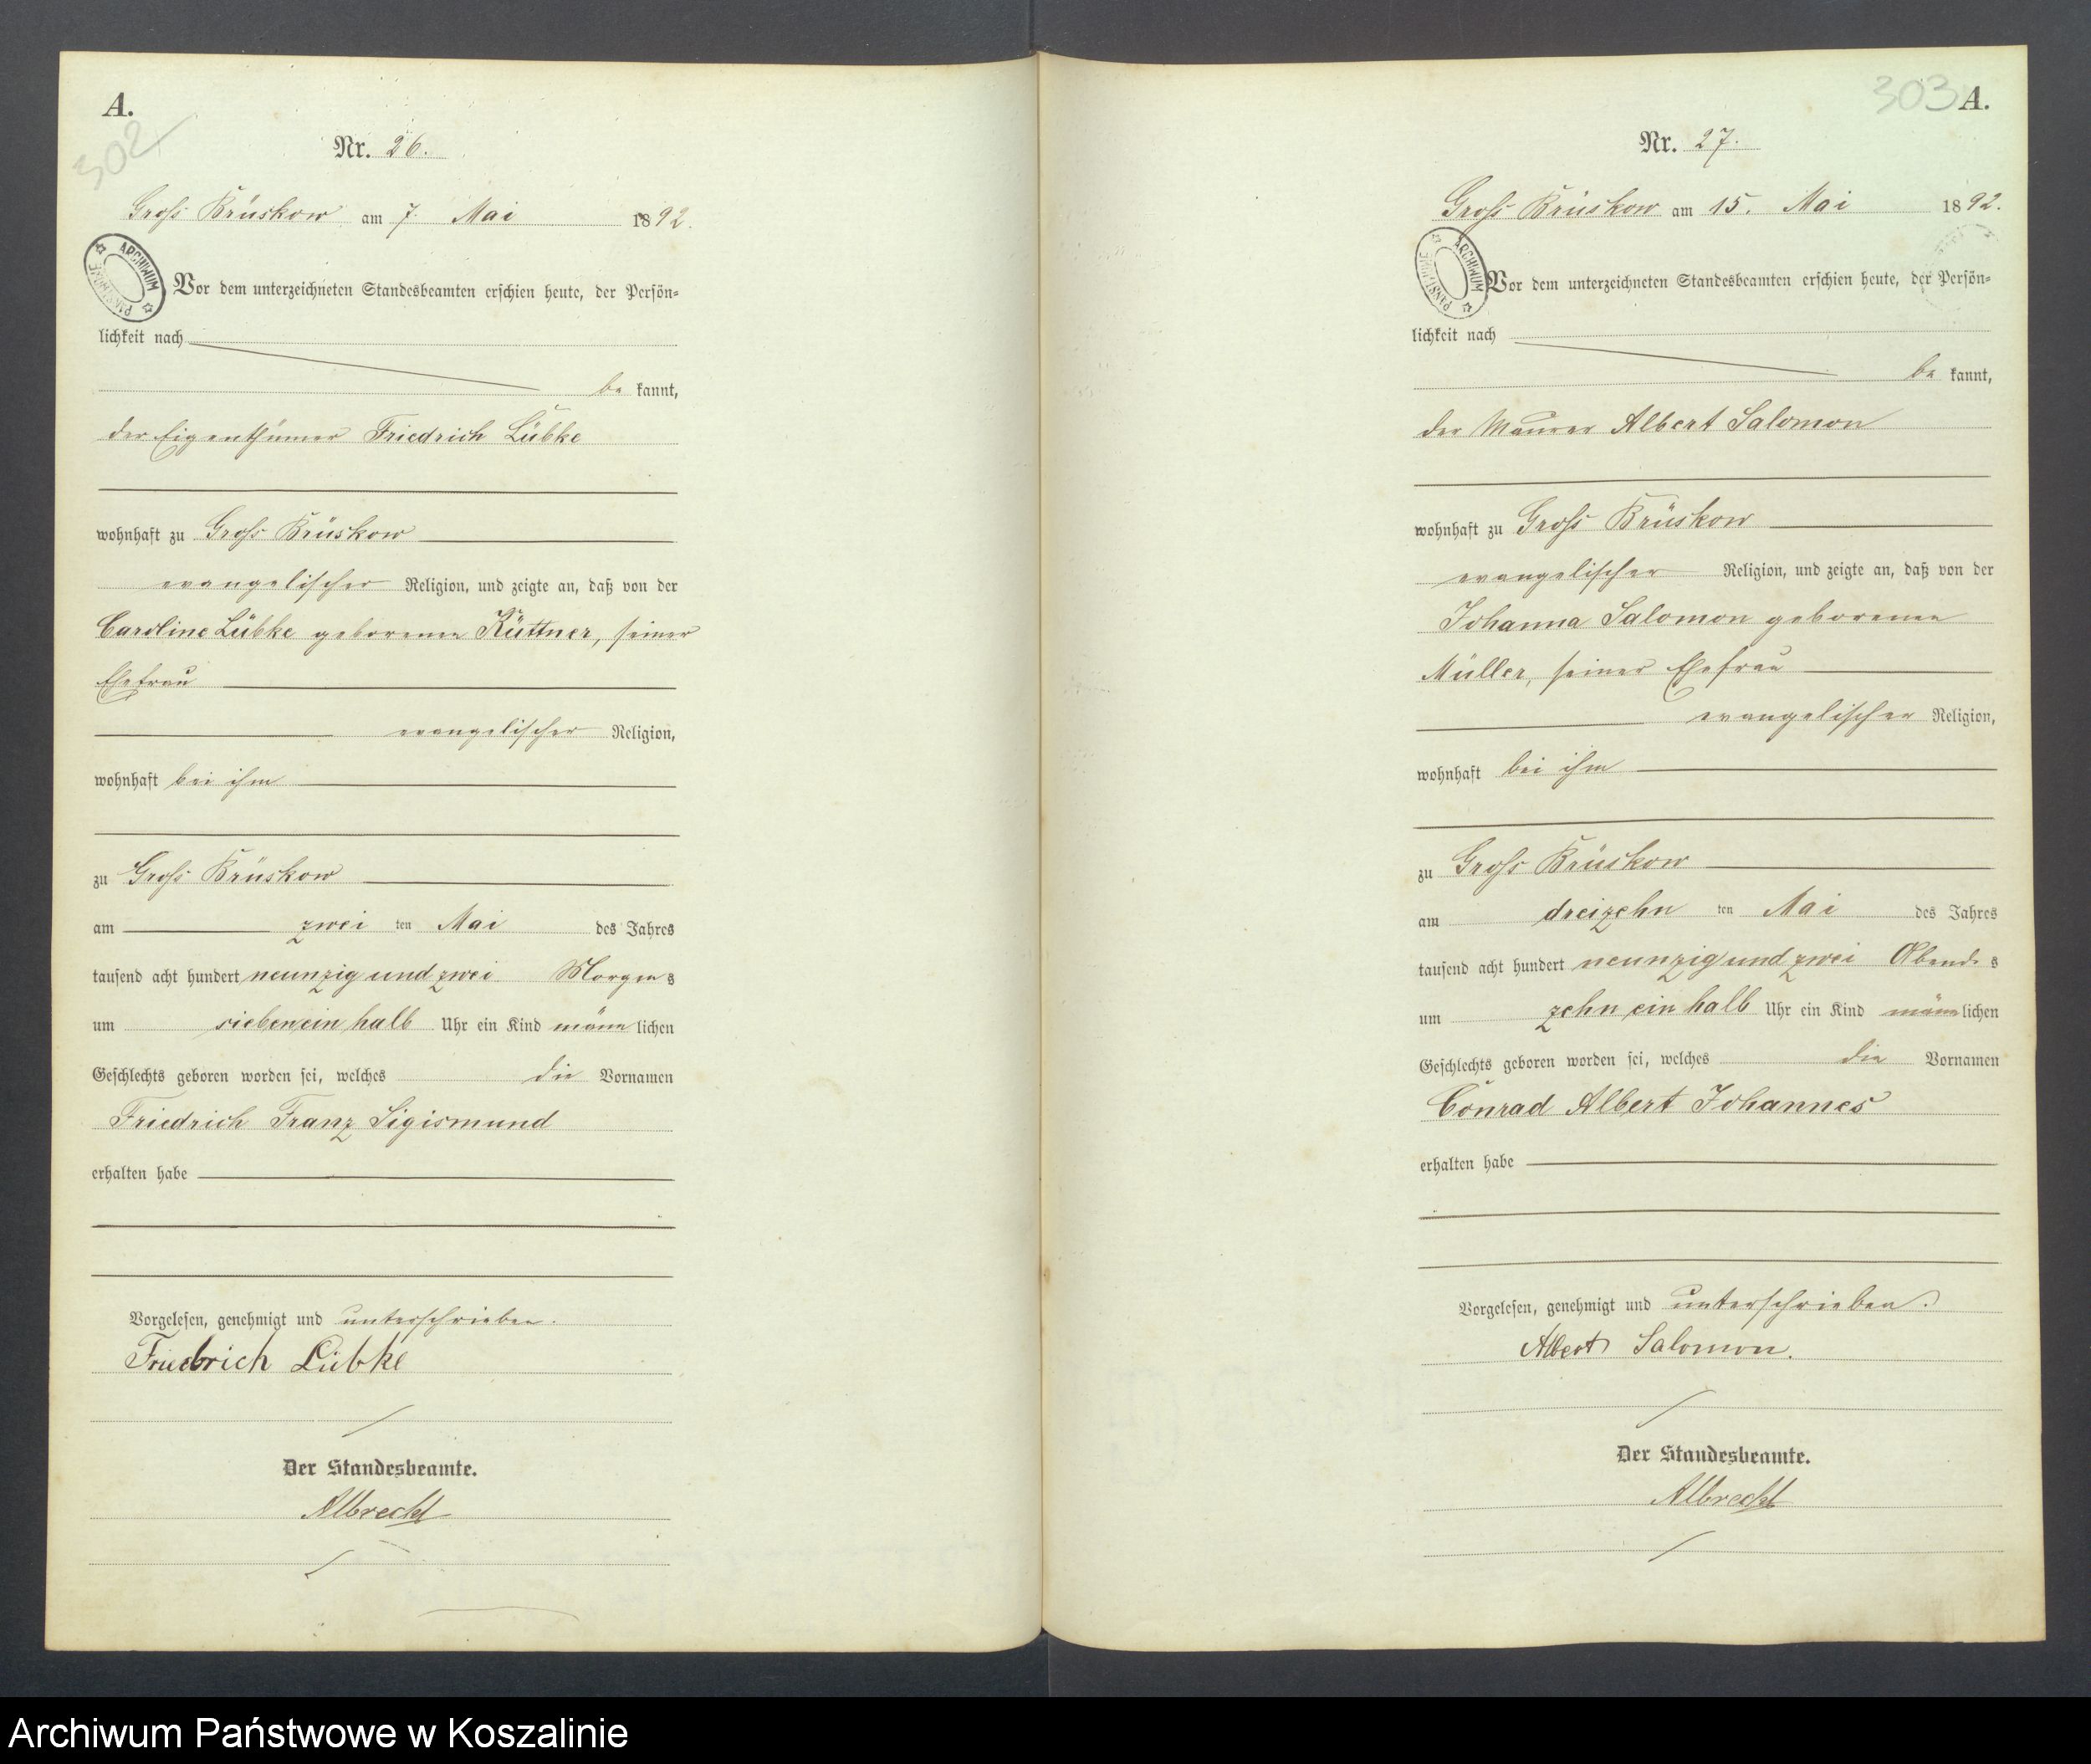 A.
302
Nr. 26.
Groß Brüskow am 7. Mai 1892.
ARCHIWUM PAŃSTWOWE
Vor dem unterzeichneten Standesbeamten erschien heute, der Persön-
lichkeit nach
be kannt,
der Eigenthümer Friedrich Lübke
wohnhaft zu Groß Brüskow
evangelischer Religion, und zeigte an, daß von der
Caroline Lübke geborenen Küttner, seiner
Ehefrau
evangelischer Religion,
wohnhaft bei ihm
zu Groß Brüskow
am zwei ten Mai des Jahres
tausend acht hundert neunzig und zwei Morgens
um sieben ein halb Uhr ein Kind männlichen
Geschlechts geboren worden sei, welches die Vornamen
Friedrich Franz Sigismund
erhalten habe
Vorgelesen, genehmigt und unterschrieben.
Friedrich Lübke
Der Standesbeamte.
Albrecht
303 A.
Nr. 27.
Groß Brüskow am 15. Mai 1892.
ARCHIWUM PAŃSTWOWE
Vor dem unterzeichneten Standesbeamten erschien heute, der Persön-
lichkeit nach
be kannt,
der Maurer Albert Salomon
wohnhaft zu Groß Brüskow
evangelischer Religion, und zeigte an, daß von der
Johanna Salomon geborenen
Müller, seiner Ehefrau
evangelischer Religion,
wohnhaft bei ihm
zu Groß Brüskow
am dreizehn ten Mai des Jahres
tausend acht hundert neunzig und zwei Abends
um zehn ein halb Uhr ein Kind männlichen
Geschlechts geboren worden sei, welches die Vornamen
Conrad Albert Johannes
erhalten habe
Vorgelesen, genehmigt und unterschrieben.
Albert Salomon.
Der Standesbeamte.
Albrecht
Archiwum Państwowe w Koszalinie